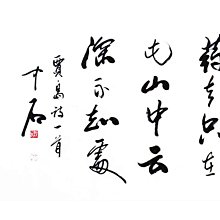 去只在
此山中云
深不知處
賈島詩一首
中石